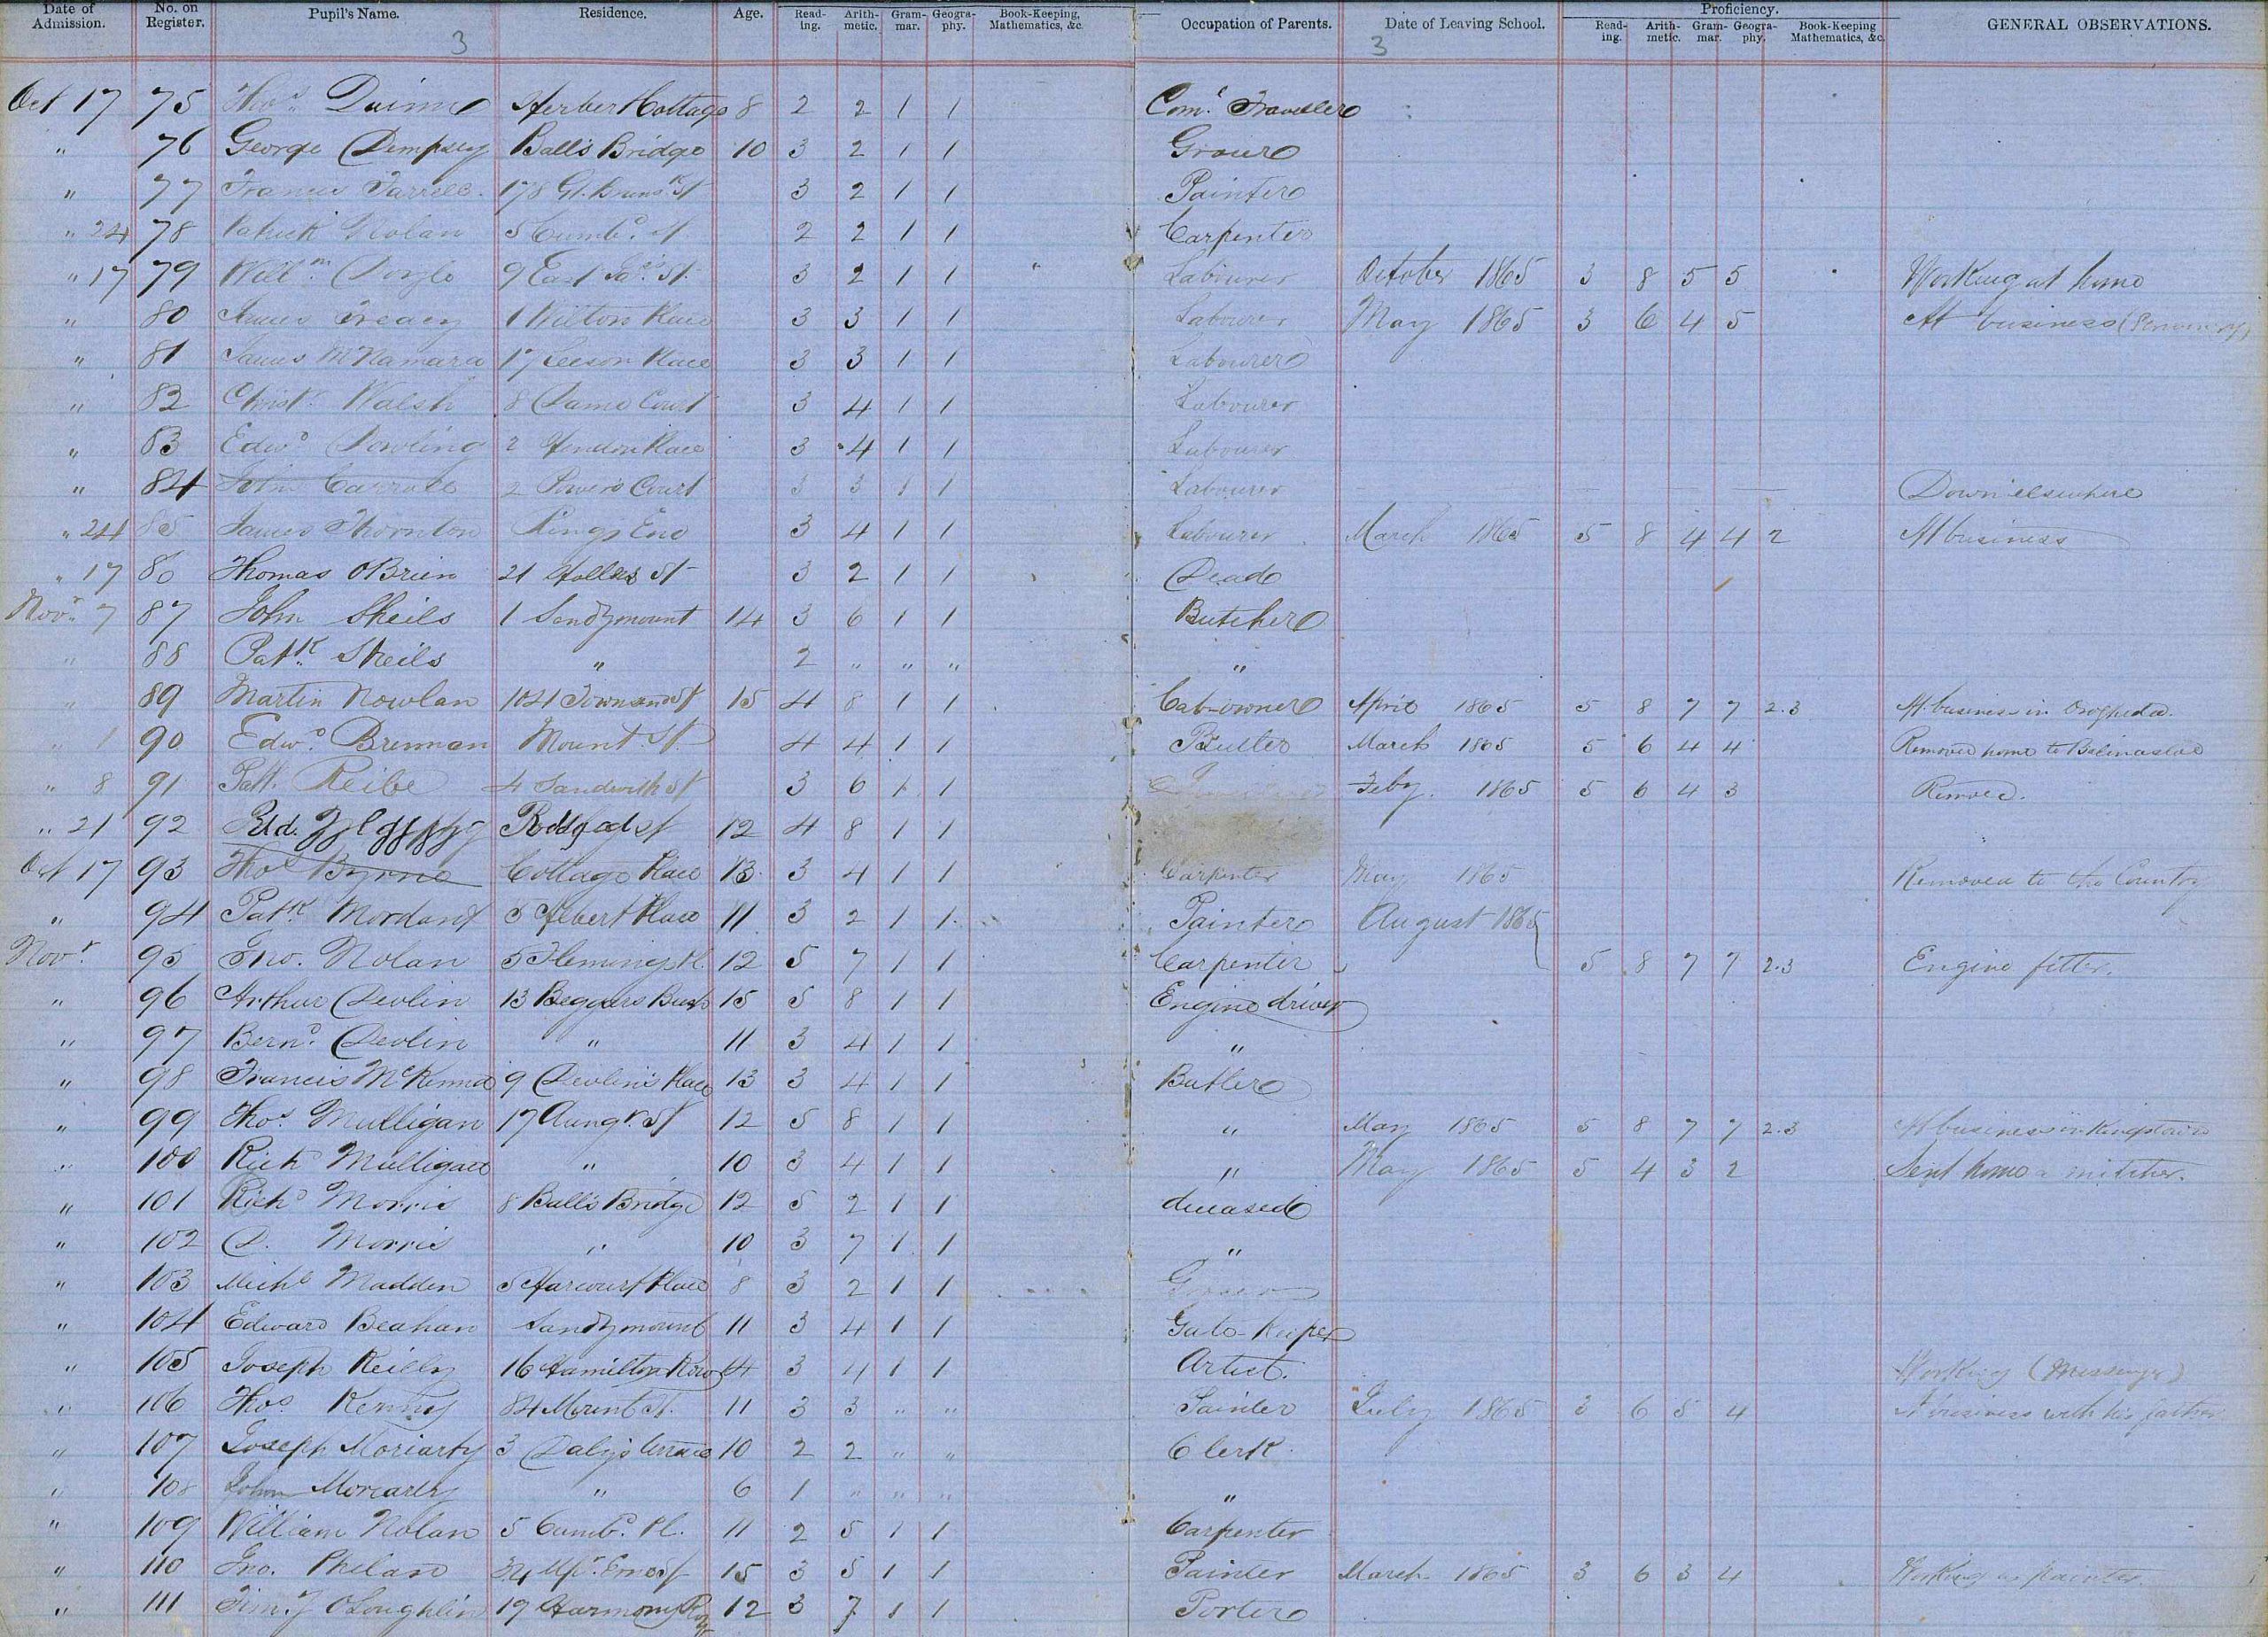 Date of Admission. No. on Register. Pupil's Name. Residence. Age. Read-ing. Arith-metic. Gram-mar. Geogra-phy. Book-Keeping, Mathematics, &c. Occupation of Parents. Date of Leaving School. Proficiency. Read-ing. Arith-metic. Gram-mar. Geogra-phy. Book-Keeping Mathematics, &c. GENERAL OBSERVATIONS.
3 3
Oct 17 75 Thos. Herbert Cottage 8 2 2 1 1 Coml. Traveller
" 76 George Dempsey Ball's Bridge 10 3 2 1 1 Grocer
" 77 Francis Farrell. 178 Gt. Bruns. St 3 2 1 1 Painter
" 24 78 Patrick Nolan 5 Cumbd. St. 2 2 1 1 Carpenter
" 17 79 Willm. Doyle 9 East St. 3 2 1 1 Labourer October 1865 3 8 5 5 Working at home
" 80 James Treacy 1 Wilton Place 3 3 1 1 Labourer May 1865 3 6 4 5 At business
" 81 James McNamara 17 Leeson Place 3 3 1 1 Labourer
" 82 Christr. Walsh 8 Dame Court 3 4 1 1 Labourer
" 83 Edwd. Dowling 2 Place 3 4 1 1 Labourer
" 84 John Carroll 2 Power's Court 3 3 1 1 Labourer Down elsewhere
" 24 85 James Thornton Rings End 3 4 1 1 Labourer March 1865 5 8 4 4 2 At business
" 17 86 Thomas OBrien 21 Holles St 3 2 1 1 Dead
Novr. 7 87 John Sheils 1 Sandymount 14 3 6 1 1 Butcher
" 88 Patk. Sheils " 2 " " " "
" 89 Martin Nowlan 104 Townsend St 15 4 8 1 1 Cab-owner April 1865 5 8 7 7 2.3 At business in Drogheda.
" 1 90 Edwd. Brennan Mount. St. 4 4 1 1 Butler March 1865 5 6 4 4 Removed home to Ballinasloe
" 8 91 Patt. Reibe 4 Sandwith St 3 6 1 1 Feby. 1865 5 6 4 3 Removed.
" 21 92 12 4 8 1 1
Oct 17 93 Thos Byrne Cottage Place 13 3 4 1 1 Carpenter May 1865 Removed to the Country
" 94 Patk Mordant 5 Albert Place 11 3 2 1 1 Painter August 1865
Novr. 95 Jno. Nolan 5 Fleming's Pl. 12 5 7 1 1 Carpenter 5 8 7 7 2.3 Engine fitter.
" 96 Arthur Devlin 13 Beggars Bush 15 5 8 1 1 Engine driver
" 97 Bernd. Devlin " 11 3 4 1 1 "
" 98 Francis McKenna 9 Devlin's Place 13 3 4 1 1 Butler
" 99 Thos. Mulligan 17 Aungr. St 12 5 8 1 1 " May 1865 5 8 7 7 2.3 At business in Kingstown
" 100 Richd Mulligan " 10 3 4 1 1 " May 1865 5 4 3 2 Sent home a mitcher.
" 101 Richd Morris 8 Ball's Bridge 12 5 2 1 1 deceased
" 102 D. Morris " 10 3 7 1 1 "
" 103 Michl Madden 5 Harcourt Place 8 3 2 1 1 Grocer
" 104 Edward Beahan Sandymount 11 3 4 1 1 Gate-Keeper
" 105 Joseph Reilly 16 Hamilton Row 14 3 4 1 1 Artist. Working (Messenger)
" 106 Thos. Kenny 84 Mount St. 11 3 3 " " Painter July 1865 3 6 5 4 At business with his father
" 107 Joseph Moriarty 3 Daly's terrace 10 2 2 " " Clerk.
" 108 John Moriarty " 6 1 " " " "
" 109 William Nolan 5 Cumbd. Pl. 11 2 5 1 1 Carpenter
" 110 Jno. Phelan 34 Upr. Erne St 15 3 5 1 1 Painter March 1865 3 6 3 4 Working as painter.
" 111 Timy OLoughlin 19 Harmony Row 12 3 7 1 1 Porter